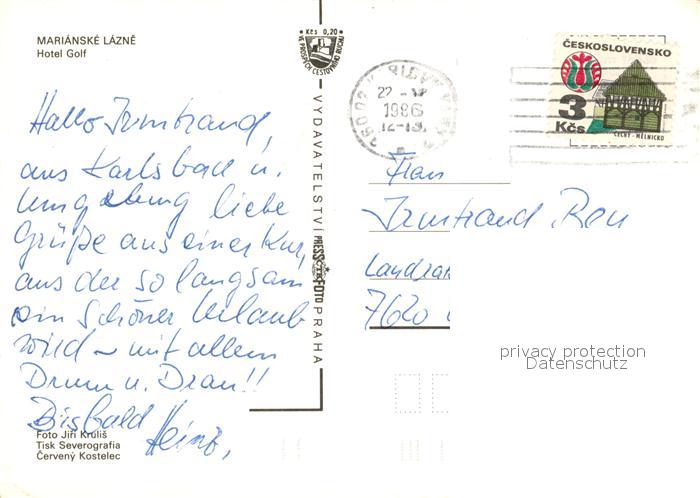 MARIÁNSKÉ LÁZNĚ
Hotel Golf
Hallo Irmtraud,
aus Karlsbad u.
Umgebung liebe
Grüße aus einer Kur,
aus der so langsam
ein schöner Urlaub
wird – mit allem
Drum u. Dran!!
Bis bald Heinz,
Foto Jiří Kruliš
Tisk Severografia
Červený Kostelec
Kčs 0,20
VE PROSPĚCH CESTOVNÍHO RUCHU
VYDAVATELSTVÍ PRESSFOTO PRAHA
22
1986
ČESKOSLOVENSKO
3
Kčs
ČECHY - MĚLNICKO
Frau
Irmtraud
Landra
7620
privacy protection
Datenschutz